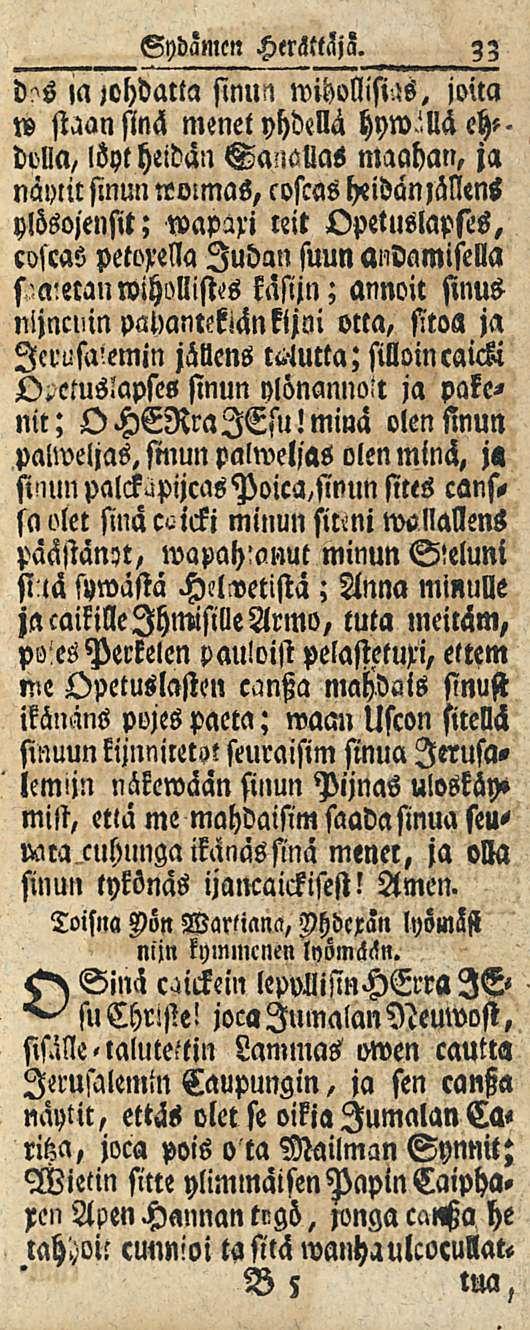 Sydämen Herättäjä. 33
ja johdatta sinun wihollisias, joita
w staan sinä menet yhdellä hywällä eh-
dolla, löyt heidän Sanallas maahan, ja
näytit sinun woimas, coscas heidän jällens
ylösojensit; wapaxi teit Opetuslapses,
coscas petoxella Judan suun andamisella
saatetan wihollistes käsijn; annoit sinus
nijncuin pahantekiän kijni otta, sitoa ja
Jerusalemin jällens talutta; silloin caicki
Opetuslapses sinun ylönannoit ja pake-
nit; O HERra JEsu! minä olen sinun
palweljas, sinun palweljas olen minä, ja
sinun palckapijcas Poica, sinun sites cans-
sa olet sinä caicki minun siteni wallallens
päästänyt, wapahtanut minun Sieluni
sijtä sywästä Helwetistä; Anna minulle
ja caikille Ihmisille Armo, tuta meitäm,
pojes Perkelen pauloist pelastetuxi, ettem
me Opetuslasten canßa mahdais sinust
ikänäns pojes paeta; waan Uscon sitellä
sinuun kijnnitetyt seuraisim sinua Jerusa-
lemijn näkewään sinun Pijnas uloskäy-
mist, että me mahdaisim saada sinua seu-
rata cuhunga ikänäs sinä menet, ja olla
sinun tykönäs ijancaickisest! Amen.
Toisna Yön Wartiana, Yhdexän lyömäst
nijn kymmenen lyömään.
O Sinä caickein lepyllisin HErra JE-
su Christe! joca Jumalan Neuwost,
sisälle-talutettin Lammas owen cautta
Jerusalemin Caupungin, ja sen canßa
näytit, ettäs olet se oikia Jumalan Ca-
ritza, joca pois o'ta Mailman Synnit;
Wietin sitte ylimmäisen Papin Caipha-
xen Apen Hannan tygö, jonga canßa he
tahdoit cunnioitta sitä wanha ulcocullat-
B 5 tua,